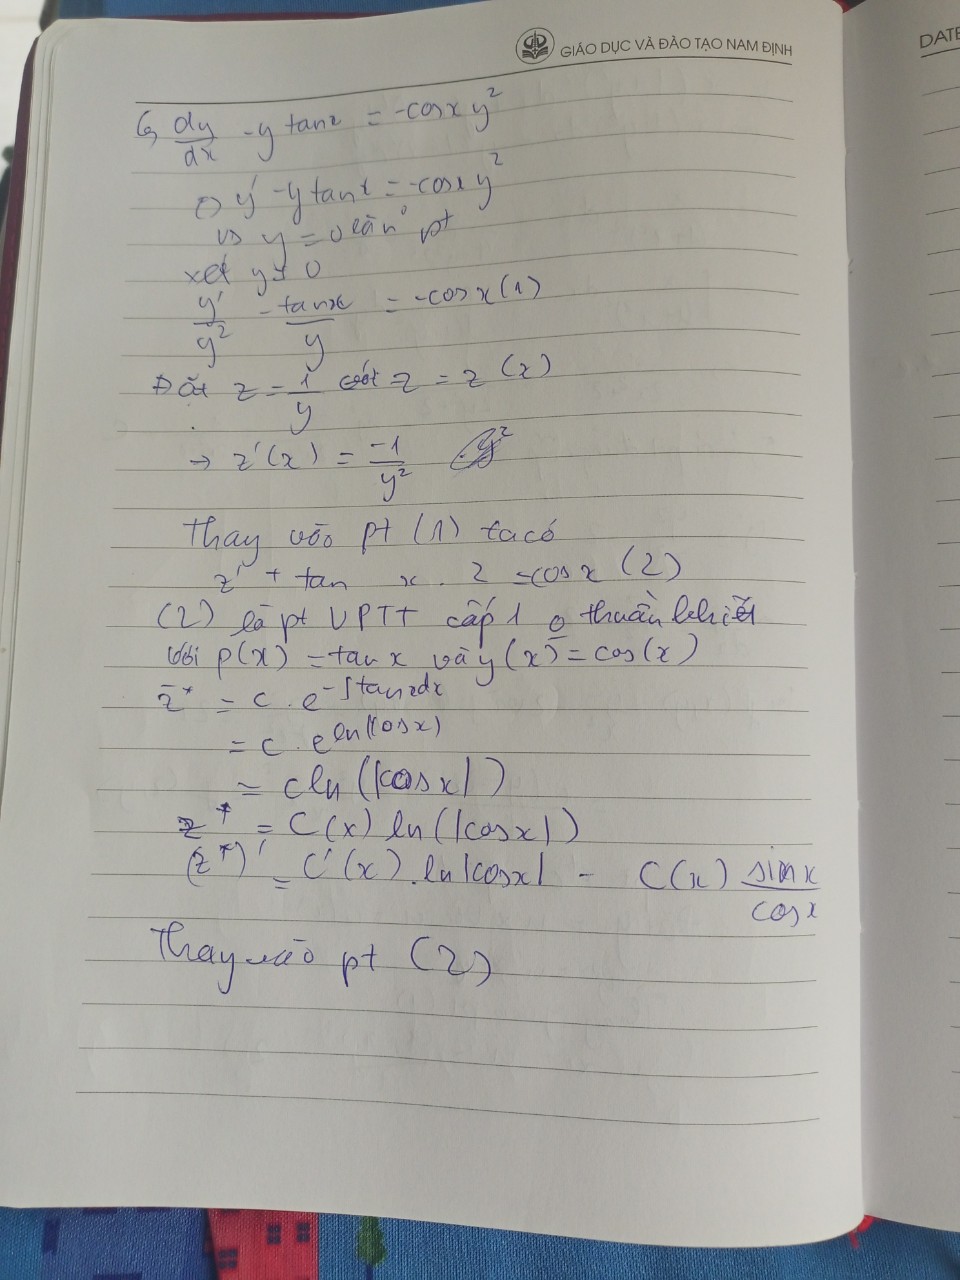 GIÁO DỤC VÀ ĐÀO TẠO NAM ĐỊNH
DATE
dy/dx - y tanx = -cosx y²
⇔ y' - y tanx = -cosx y²
y = 0 là n° pt
xét y ≠ 0
y'/y² - tanx/y = -cosx (1)
Đặt z = 1/y với z = z(x)
→ z'(x) = -1/y²
Thay vào pt (1) ta có
z' + tan x . z = cosx (2)
(2) là pt VPTT cấp 1 0 thuần khiết
với p(x) = tan x và q(x) = cos(x)
z* = c . e^{-∫tanxdx}
= c . e^{ln(cosx)}
= c ln(|cosx|)
z* = C(x) ln(|cosx|)
(z*)' = C'(x) . ln|cosx| - C(x) sinx/cosx
Thay vào pt (2)